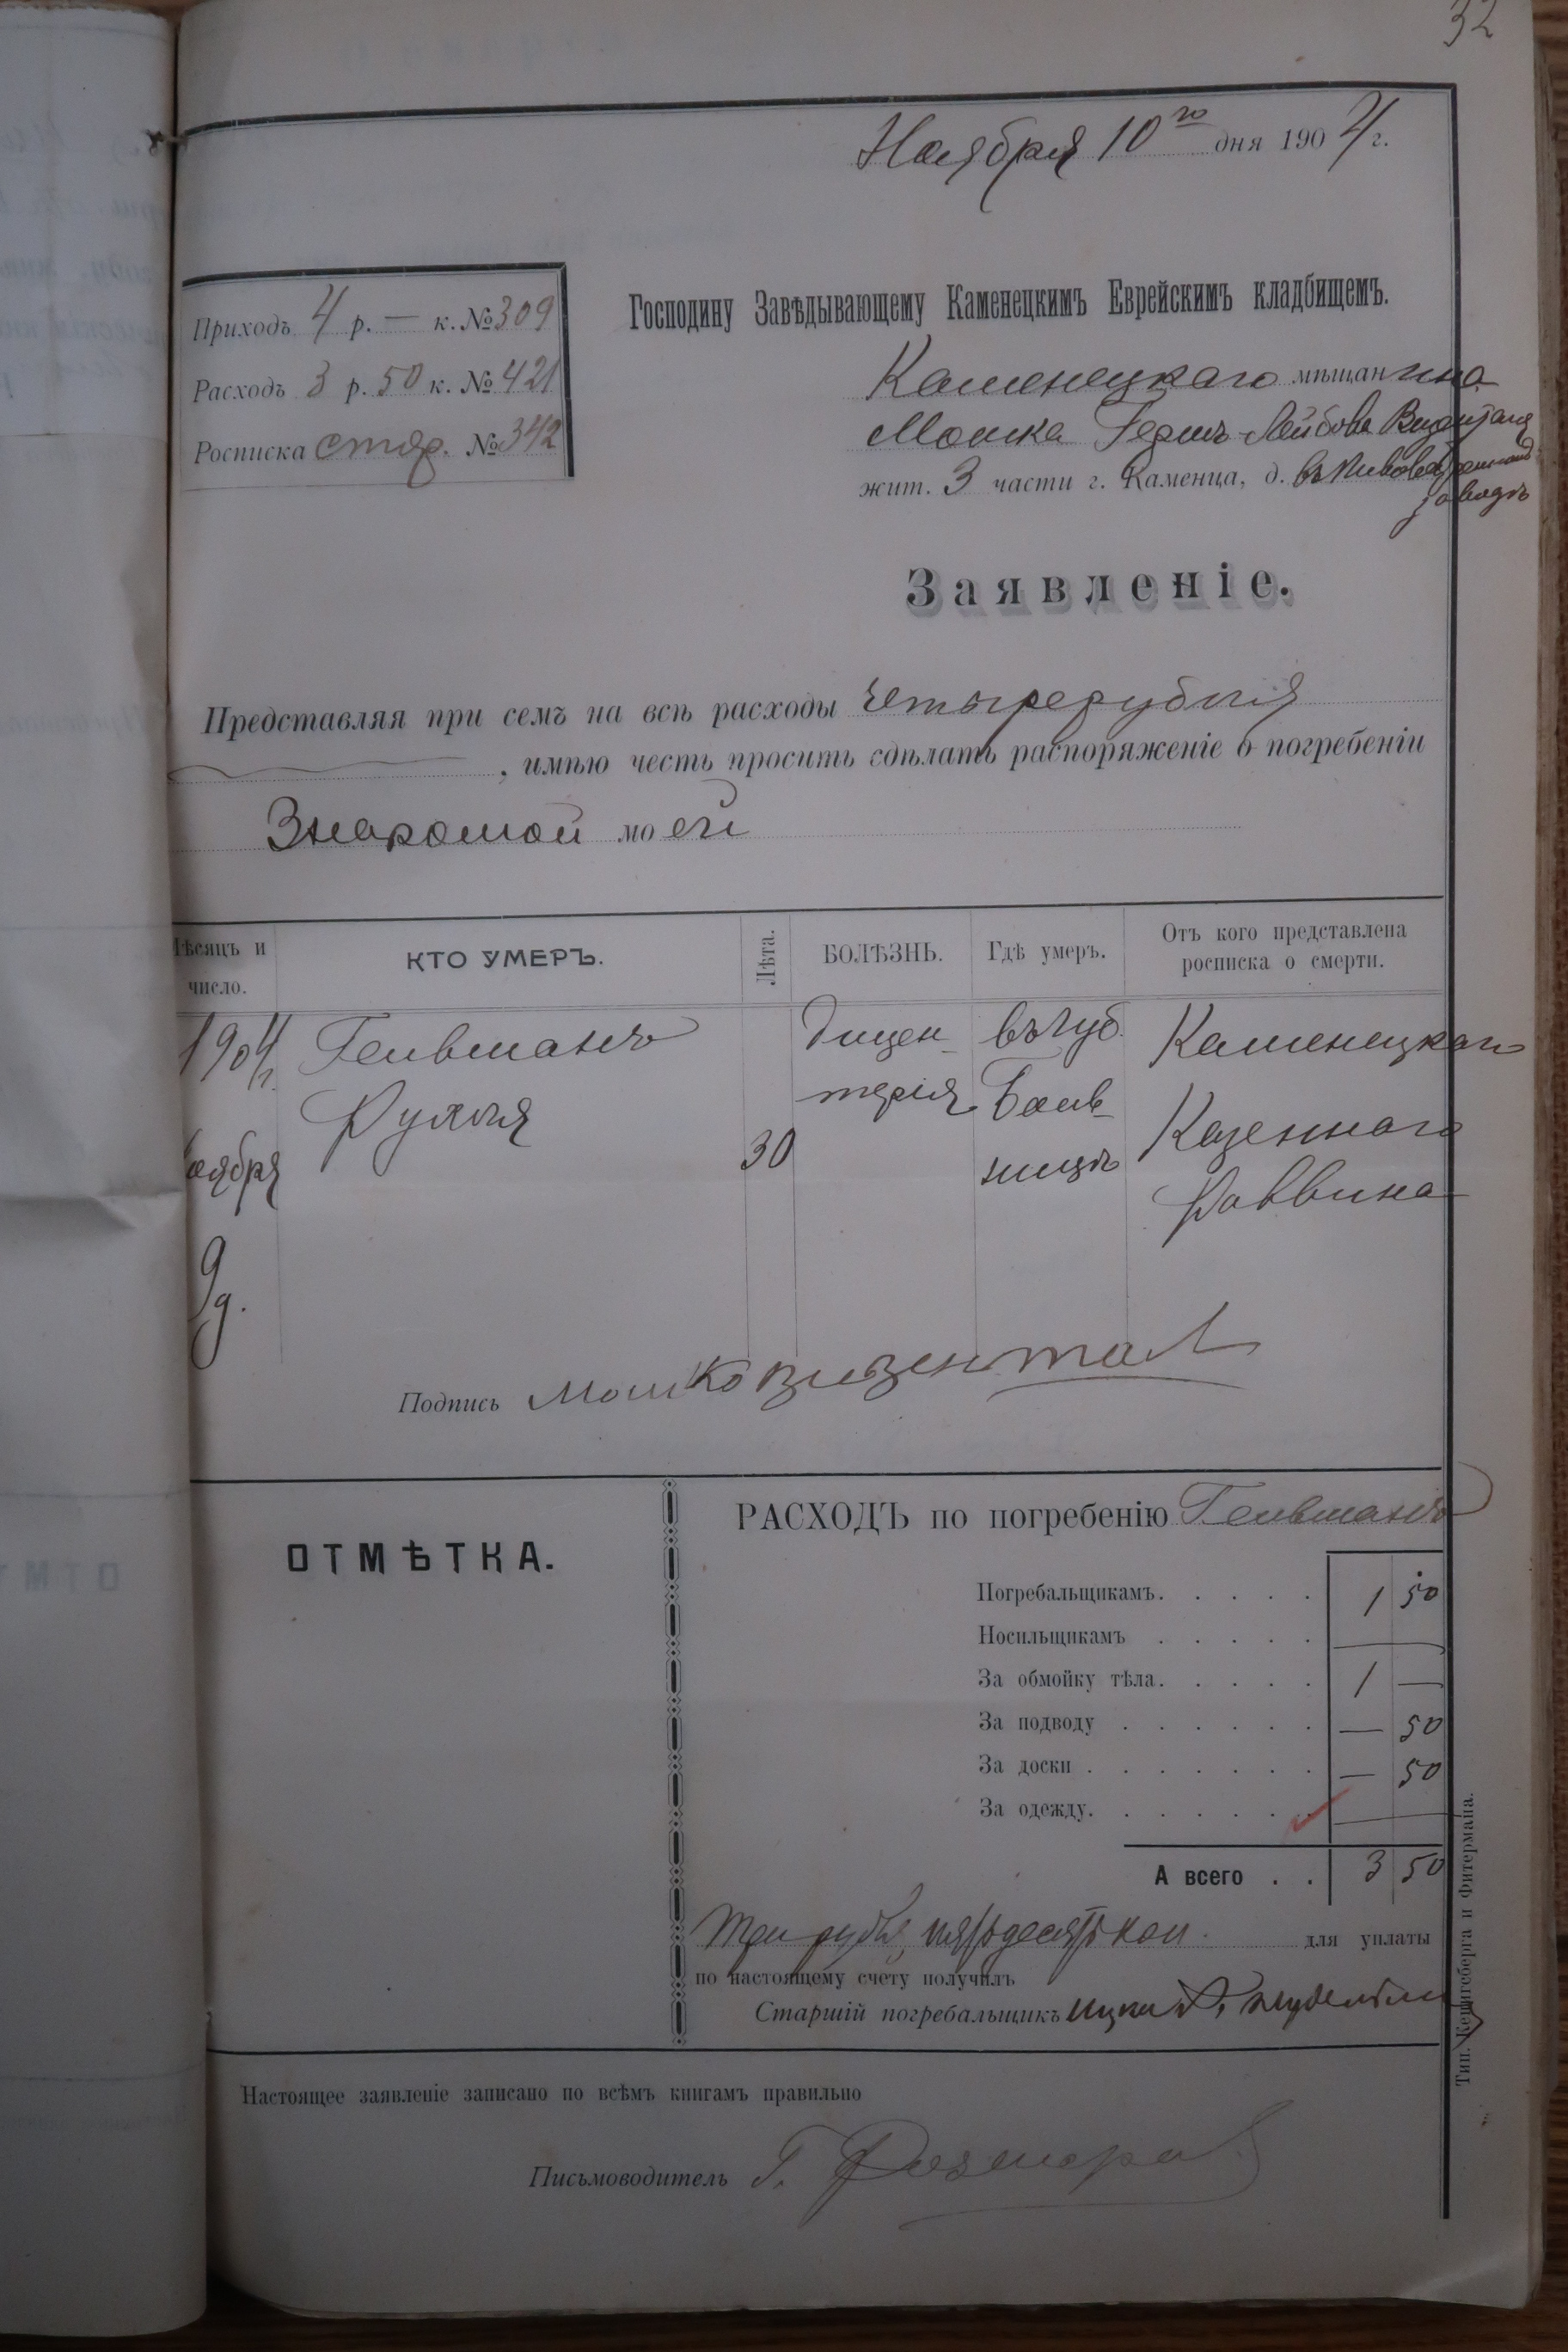 32
Ноября 10го дня 1904 г.
Приходъ 4 р. — к. № 309
Расходъ 3 р. 50 к. № 421
Росписка стар. № 342
Господину Завѣдывающему Каменецкимъ Еврейскимъ кладбищемъ.
Каменецкаго мѣщанина
Мошка Гершъ-Лейбова Визентала
жит. 3 части г. Каменца, д. въ Пивоваренномъ
заводѣ
Заявленіе.
Представляя при семъ на всѣ расходы четыре рубля
, имѣю честь просить сдѣлать распоряженіе о погребеніи
Знакомой моей
Мѣсяцъ и число.
КТО УМЕРЪ.
Лѣта.
БОЛѢЗНЬ.
Гдѣ умеръ.
Отъ кого представлена росписка о смерти.
1904 г.
Ноября
9 д.
Гельманъ
Рухля
30
Дизен-
терія
въ Губ.
Боль-
ницѣ
Каменецкаго
Казеннаго
Раввина
Подпись Мошко Визентал
ОТМѢТКА.
РАСХОДЪ по погребенію Гельманъ
Погребальщикамъ. . . . . 1 50
Носильщикамъ . . . . . —
За обмойку тѣла. . . . . 1 —
За подводу . . . . . . — 50
За доски . . . . . . . — 50
За одежду. . . . . . . —
А всего . . 3 50
Три рубля, пятьдесятъ коп. для уплаты
по настоящему счету получилъ
Старшій погребальщикъ Ицко
Настоящее заявленіе записано по всѣмъ книгамъ правильно
Письмоводитель Г.
Тип. Кенигсберга и Фитермана.